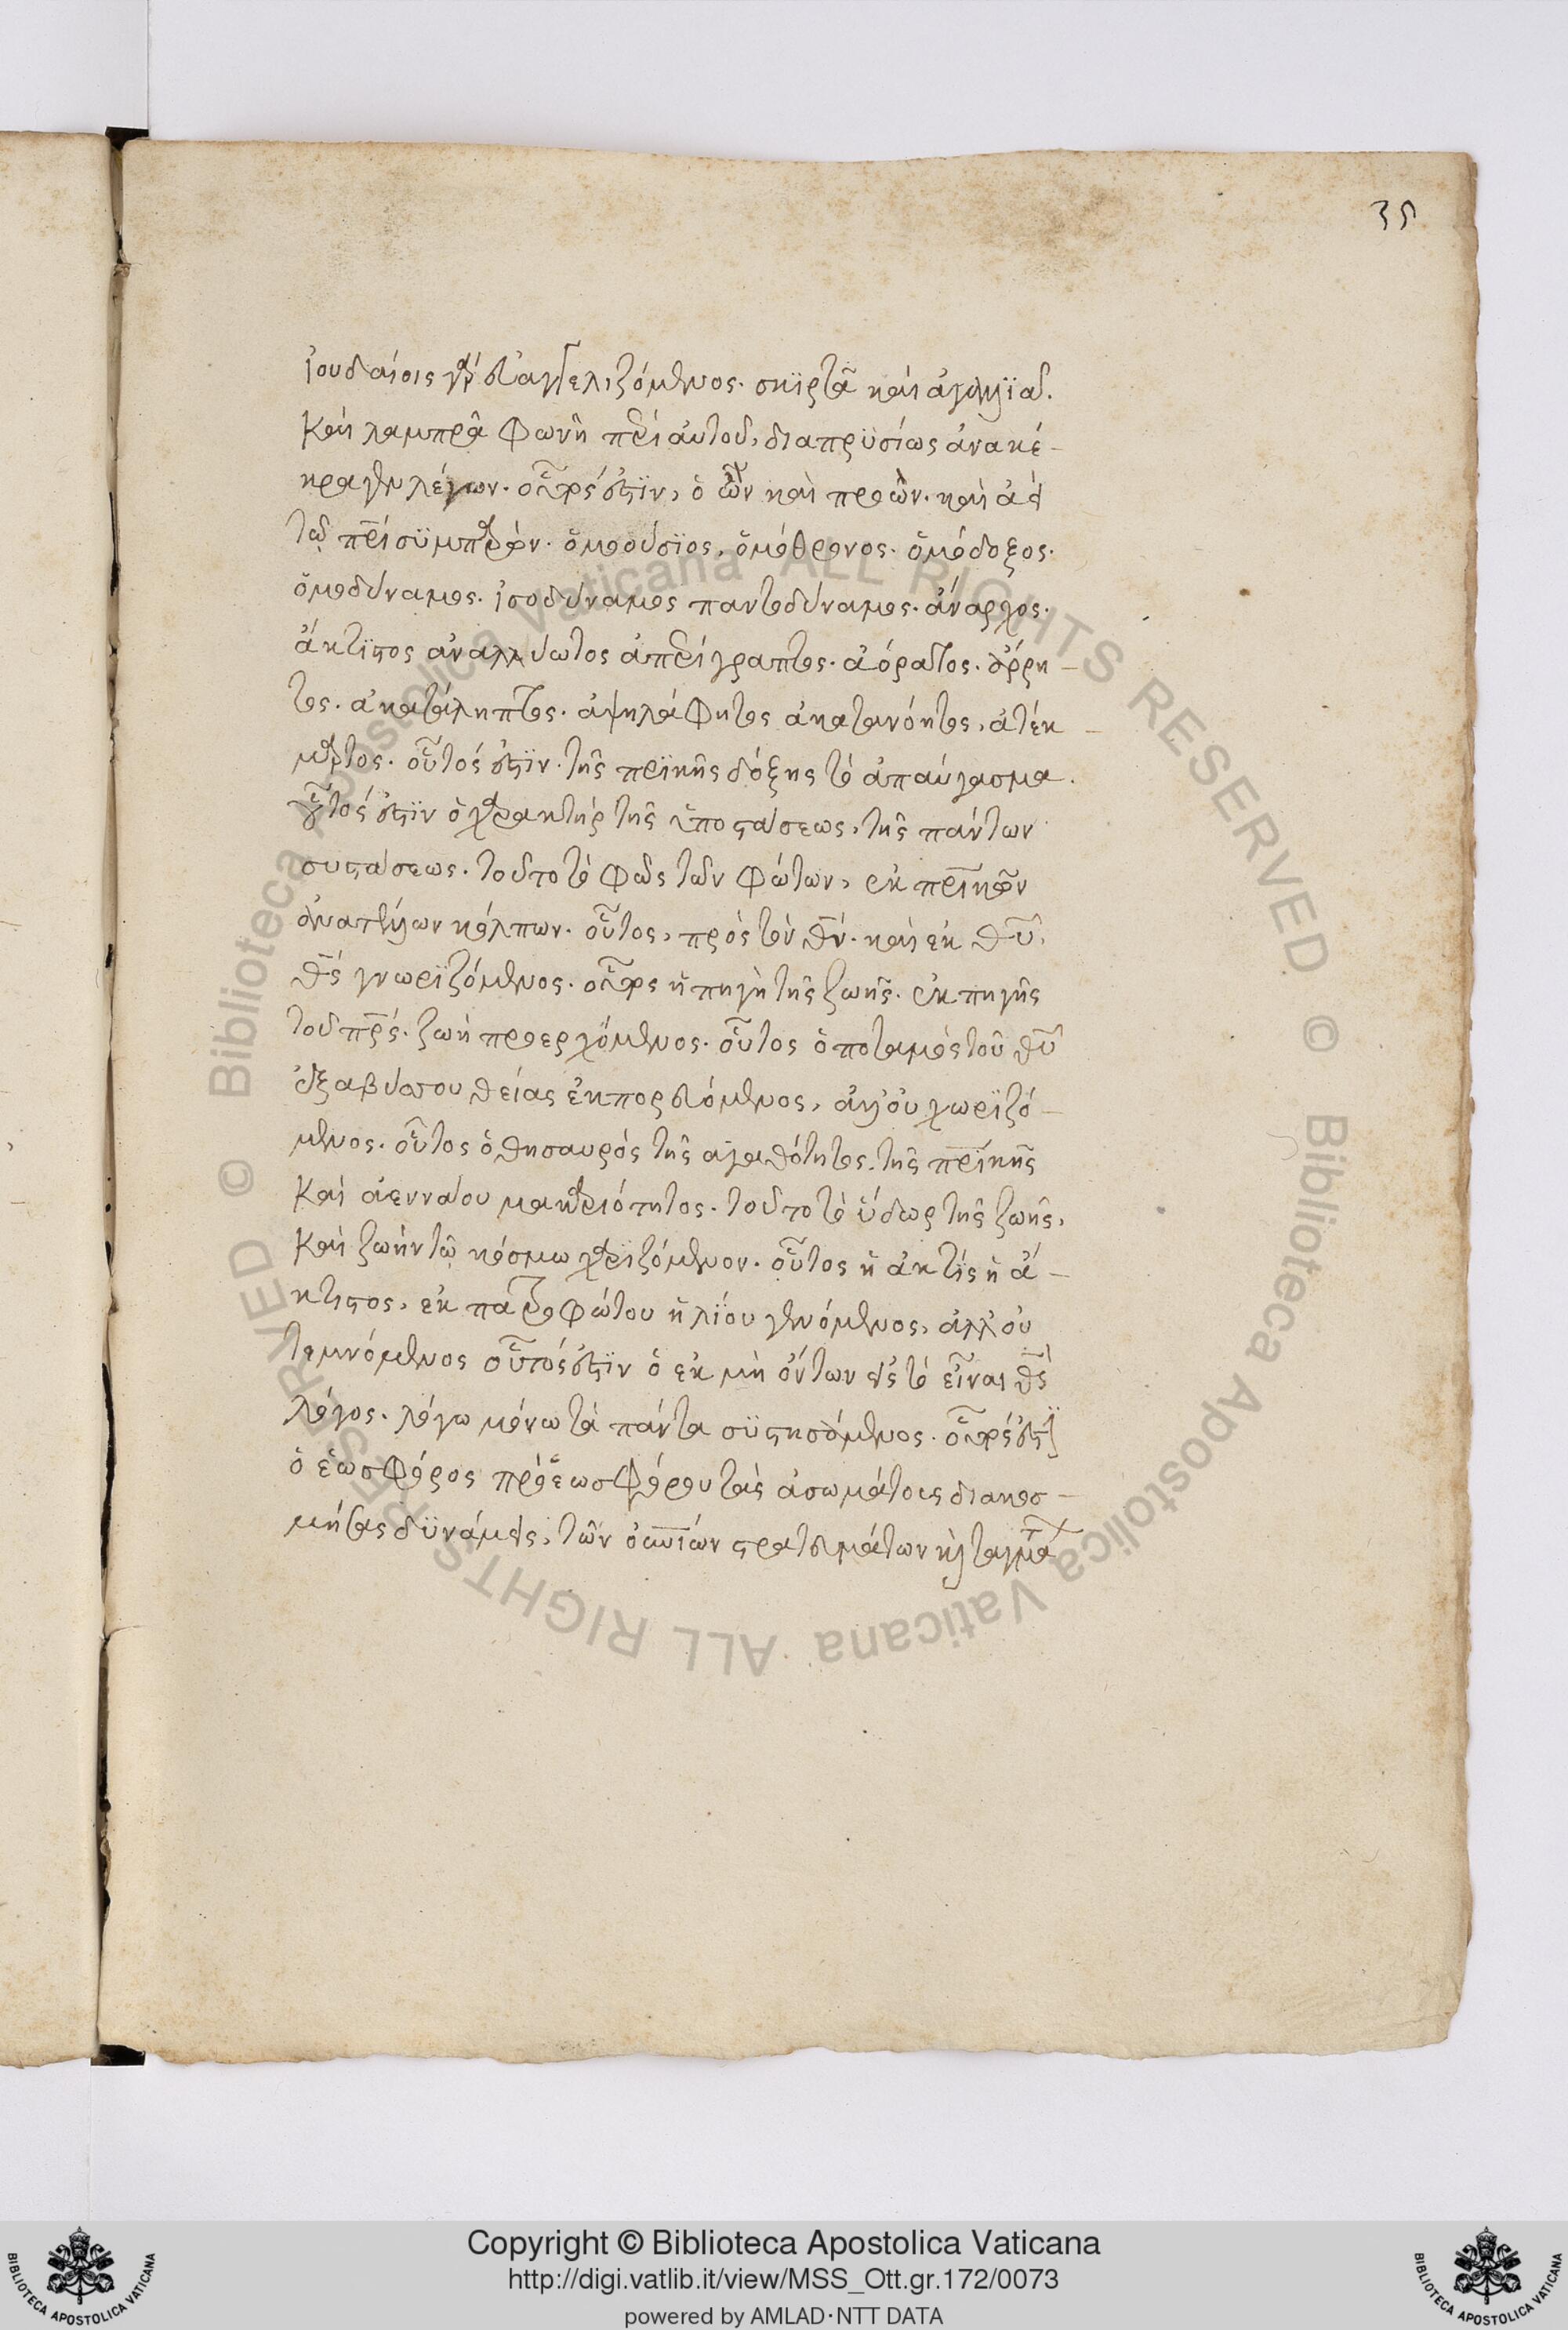 35
ἰουδαίοις γὰρ εὐαγγελιζόμενος. σκϊρτᾶ καὶ ἀγαλλϊᾶ.
Καὶ λαμπρᾶ φωνῆ περὶ αὐτοῦ, διαπρϋσίως ἀνακέ-
κραγεν λέγων. οὗτός ἐστϊν, ὁ ὢν καὶ προὼν. καὶ ἀεὶ
τῶ πρὶ σϋμπαρὼν. ὁμοούσϊος, ὁμόθρονος. ὁμόδοξος.
ὁμοδύναμος. ἰσοδύναμος παντοδύναμος. ἄναρχος.
ἄκτϊστος ἀναλλοίωτος ἀπερίγραπτος. ἀόρατος. ἄρρη-
τος. ἀκατάληπτος. ἀψηλάφητος ἀκατανόητος, ἀτέκ-
μαρτος. οὗτός ἐστϊν. τῆς πρϊκῆς δόξης τὸ ἀπαύγασμα.
οὗτός ἐστϊν ὁ χαρακτήρ τῆς ὑποστάσεως, τῆς πάντων
συστάσεως. τοῦτο τὸ φῶς τῶν φώτων, ἐκ πρϊκῶν
ἀναπτήξων κόλπων. οὗτος, πρὸς τὸν θν. καὶ ἐκ θυ,
θς γνωρϊζόμενος. οὗτος ἡ πηγὴ τῆς ζωῆς. ἐκ πηγῆς
τοῦ πρς. ζωὴ προερχόμενος. οὗτος ὁ ποταμὸς τοῦ θυ
ἐξ αβύσσου θείας ἐκπορευόμενος, ἀλλ' οὐ χωρϊζό-
μενος. οὗτος ὁ θησαυρός τῆς αγαθότητος, τῆς πρϊκῆς
Καὶ ἀεννάου μακαριότητος. τοῦτο τὸ ὕδωρ τῆς ζωῆς,
Καὶ ζωὴν τῶ κόσμω χαρϊζόμενον. οὗτος ἡ ἀκτὶς ἡ ἄ-
κτιστος, ἐκ πατροφώτου ἡλϊου γενόμενος, ἀλλ' οὐ
τεμνόμενος οὗτός ἐστϊν ὁ ἐκ μὴ ὄντων εἰς τὸ εἶναι θς
λόγος. λόγω μόνω τὰ πάντα σϋστησάμενος. οὗτός ἐστϊν
ὁ ἑωσφόρος πρὸ ἑωσφόρου τὰς ἀσωμάτοις διακοσ-
μήσας δϋνάμεις, τῶν οὐνίων στρατευμάτων καὶ ταγμά
Copyright © Biblioteca Apostolica Vaticana
http://digi.vatlib.it/view/MSS_Ott.gr.172/0073
powered by AMLAD·NTT DATA